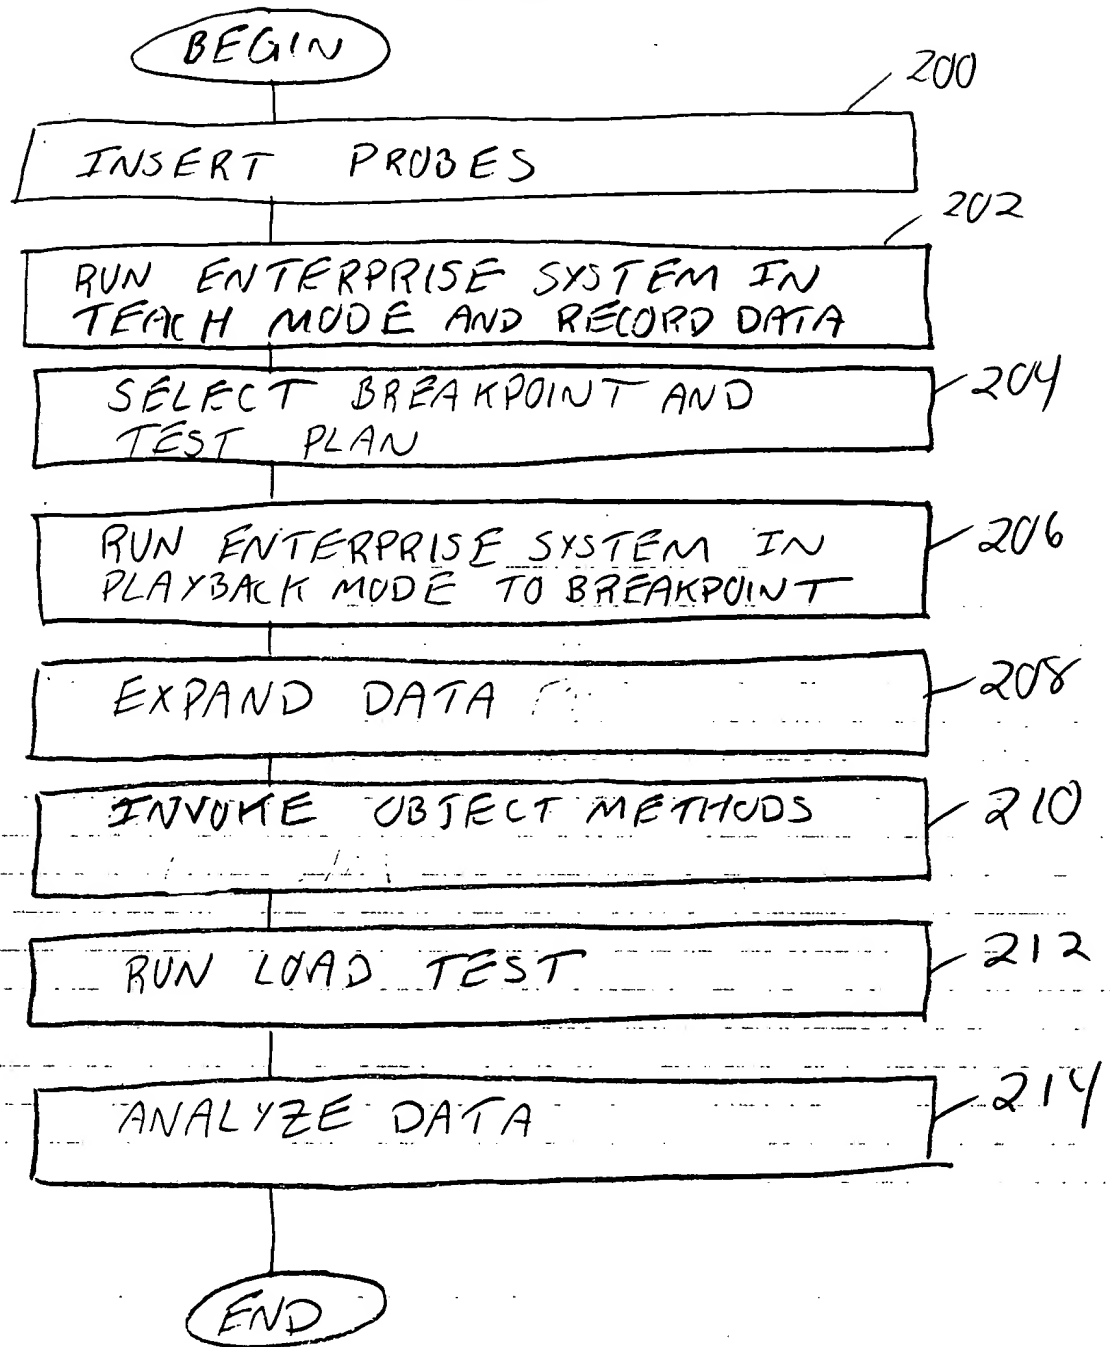 BEGIN
200
INSERT PROBES
202
RUN ENTERPRISE SYSTEM IN
TEACH MODE AND RECORD DATA
204
SELECT BREAKPOINT AND
TEST PLAN
206
RUN ENTERPRISE SYSTEM IN
PLAYBACK MODE TO BREAKPOINT
208
EXPAND DATA
INVOKE OBJECT METHODS
210
RUN LOAD TEST
212
ANALYZE DATA
214
END